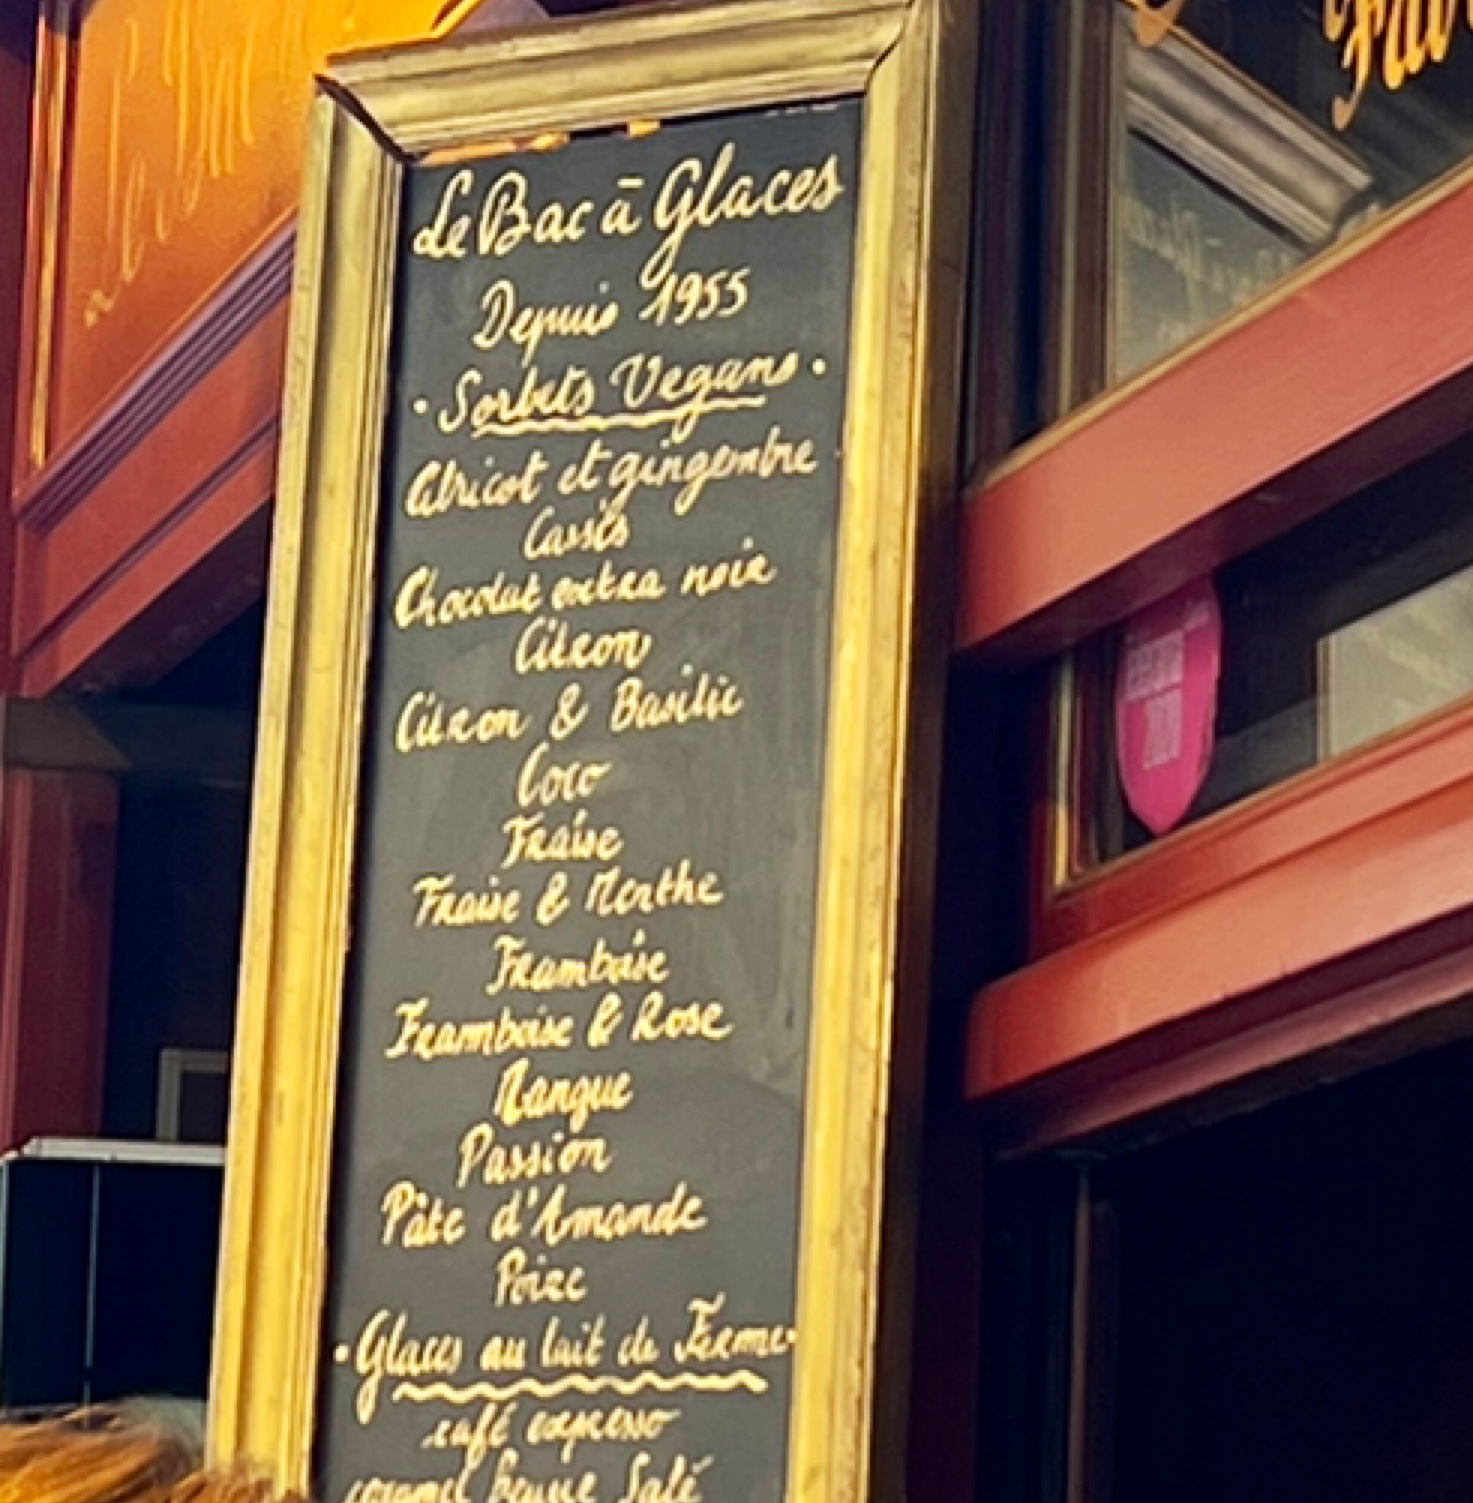 Le Bac à Glaces
Depuis 1955
· Sorbets Vegans ·
Abricot et gingembre
Cassis
Chocolat extra noir
Citron
Citron & Basilic
Coco
Fraise
Fraise & Menthe
Framboise
Framboise & Rose
Mangue
Passion
Pâte d'Amande
Poire
· Glaces au lait de Ferme ·
café expresso
caramel beurre salé